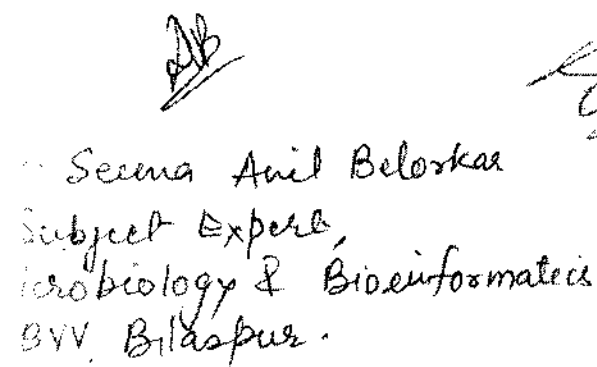 Seema Anil Belorkar
Subject Expert,
icrobiology & Bioinformatics
BVV. Bilaspur.